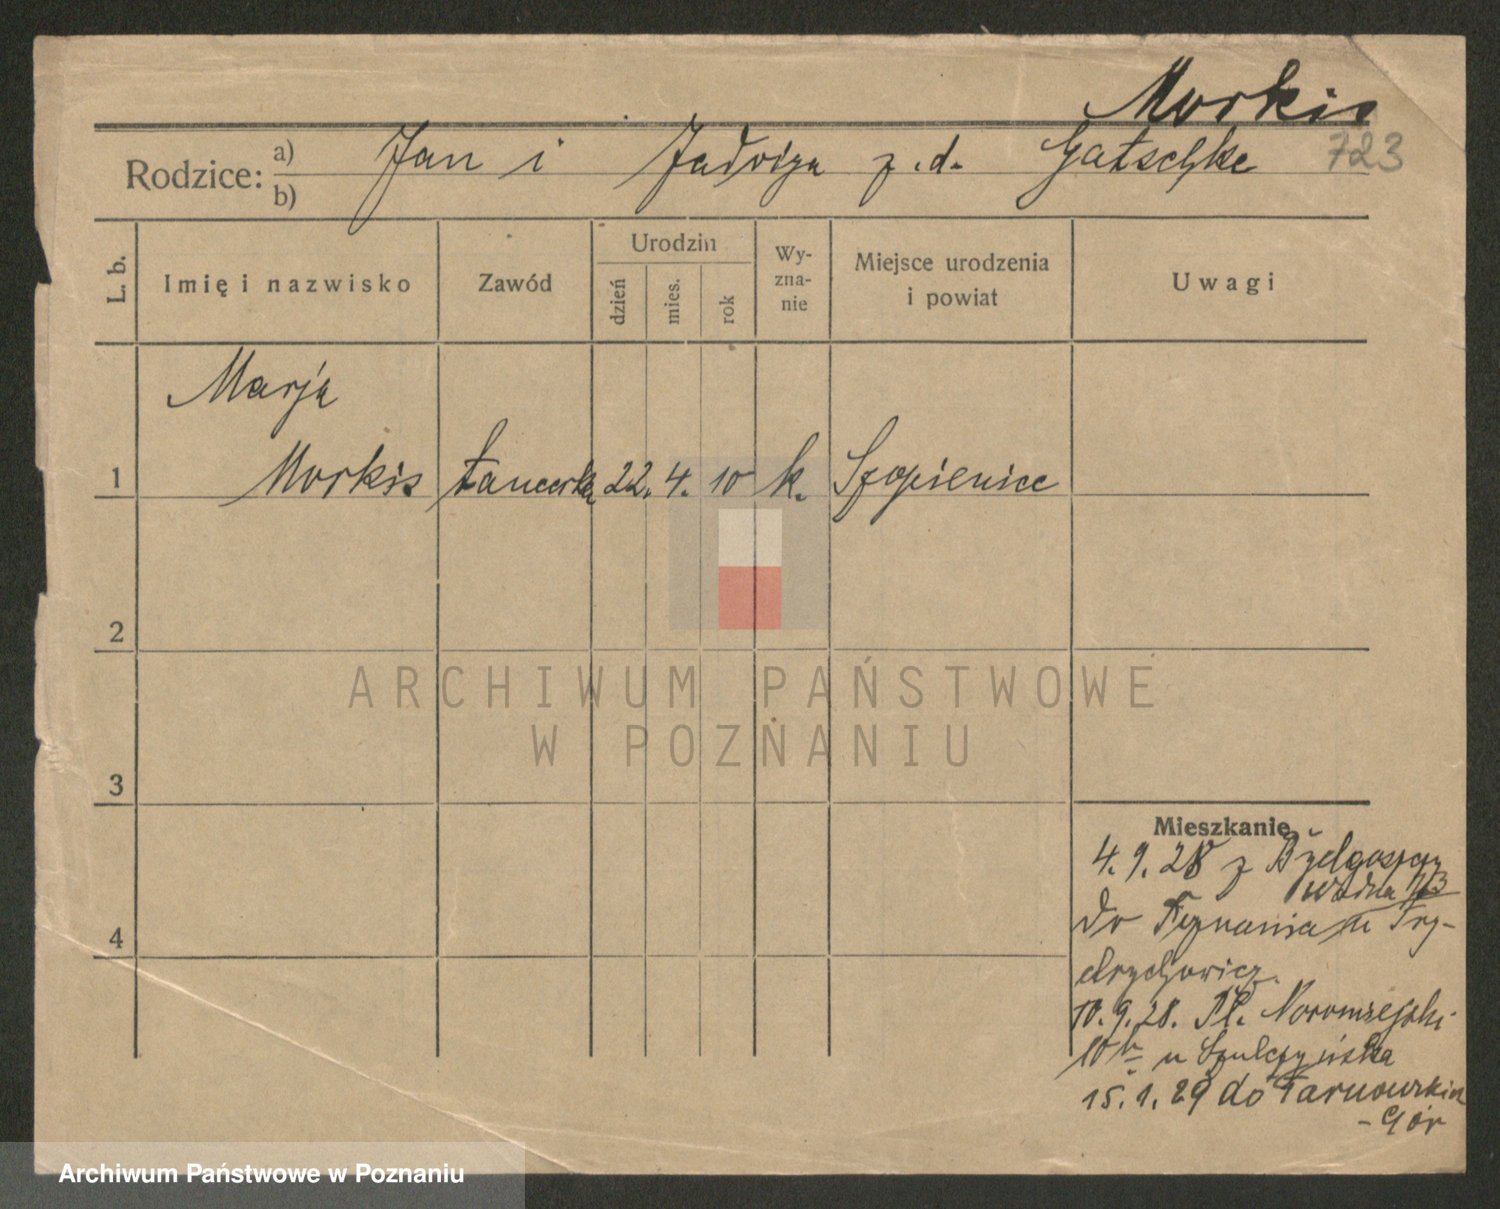 Morkis
723
Rodzice: a) Jan i Jadwiga z. d. Gatschke
b)
L. b.
Imię i nazwisko
Zawód
Urodzin
dzień
mies.
rok
Wy-
zna-
nie
Miejsce urodzenia
i powiat
Uwagi
Marja
1 Morkis tancerka 22. 4. 10 k. Szopienice
2
3
4
Mieszkanie
4. 9. 28 z Bydgoszczy
do Poznania u Fry-
drychowicz.
10. 9. 28. Pl. Nowomiejski
10 u Szulczyńska
15. 1. 29 do Tarnowskich
-Gór
ARCHIWUM PAŃSTWOWE
W POZNANIU
Archiwum Państwowe w Poznaniu